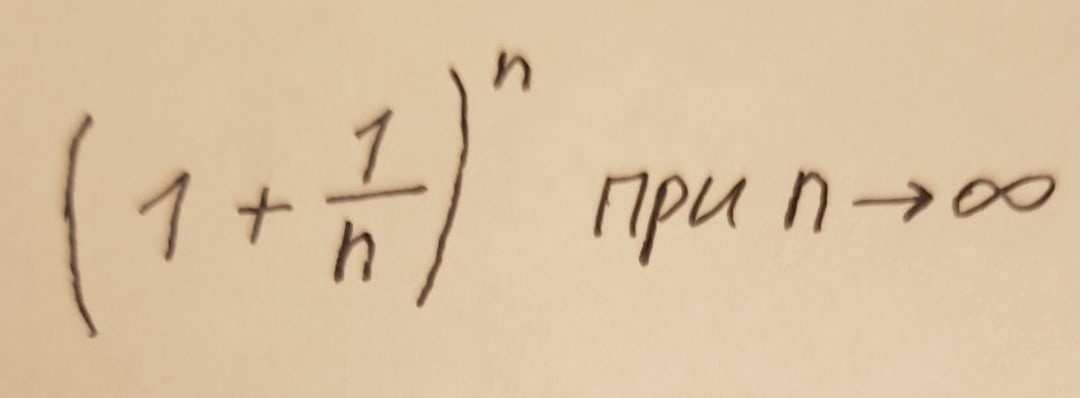 (1 + 1/n)^n при n → ∞